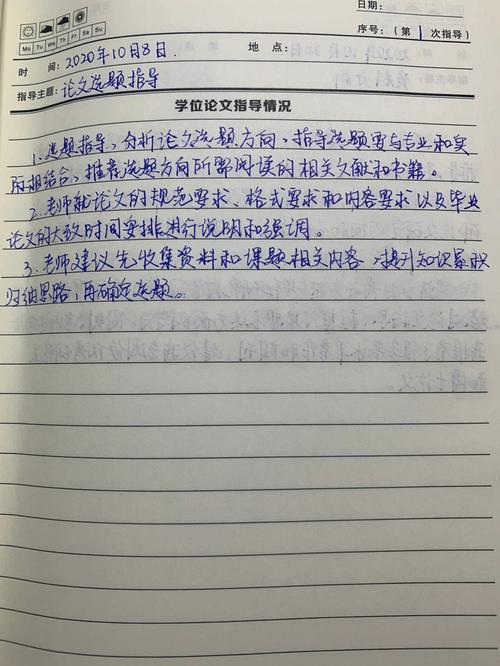 日期：
Mo Tu We Th Fr Sa Su
序号：（第 1 次指导）
时间：2020年10月8日. 地点：
指导主题：论文选题指导
学位论文指导情况
1.选题指导，分析论文选题方向，指导选题要与专业和实
际相结合，推荐选题方向所需阅读的相关文献和书籍。
2.老师就论文的规范要求、格式要求和内容要求以及毕业
论文的大致时间安排进行说明和强调。
3.老师建议先收集资料和课题相关内容，提升知识累积
归纳思路，再确定选题。